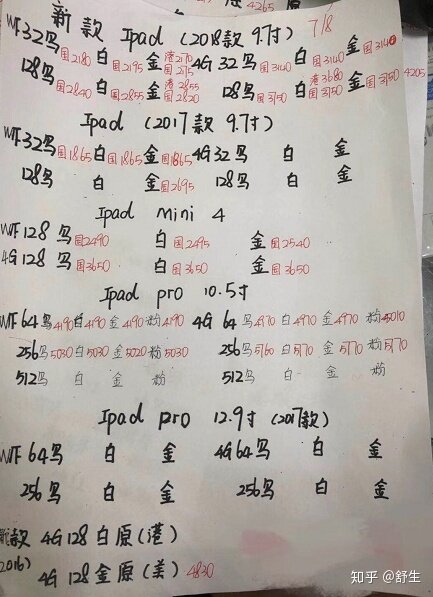 4265
新款 Ipad (2018款 9.7寸) 7/8
WF 32鸟 国2180 白 国2195 金 港2170 国2175 4G 32鸟 国3140 白 国3140 金 国3140
128鸟 国2840 白 国2855 金 港2855 国2820 128鸟 国3150 白 港3680 国3150 金 国3150 4205
Ipad (2017款 9.7寸)
WF32鸟 国1865 白 国1865 金 国1865 4G 32鸟 白 金
128鸟 白 金 国2695 128鸟 白 金
Ipad mini 4
WF 128鸟 国2490 白 国2495 金 国2540
4G 128鸟 国3650 白 国3650 金 国3650
Ipad pro 10.5寸
WF 64鸟 4190 白 4190 金 4190 粉 4190 4G 64鸟 4970 白 4970 金 4970 粉 5010
256鸟 5030 白 5030 金 5020 粉 5030 256鸟 5760 白 5770 金 5770 粉 5770
512鸟 白 金 粉 512鸟 白 金 粉
Ipad pro 12.9寸 (2017款)
WF 64鸟 白 金 4G 64鸟 白 金
256鸟 白 金 256鸟 白 金
款 4G 128 白原(港)
2016) 4G 128 金原(美) 4830
知乎 @舒生